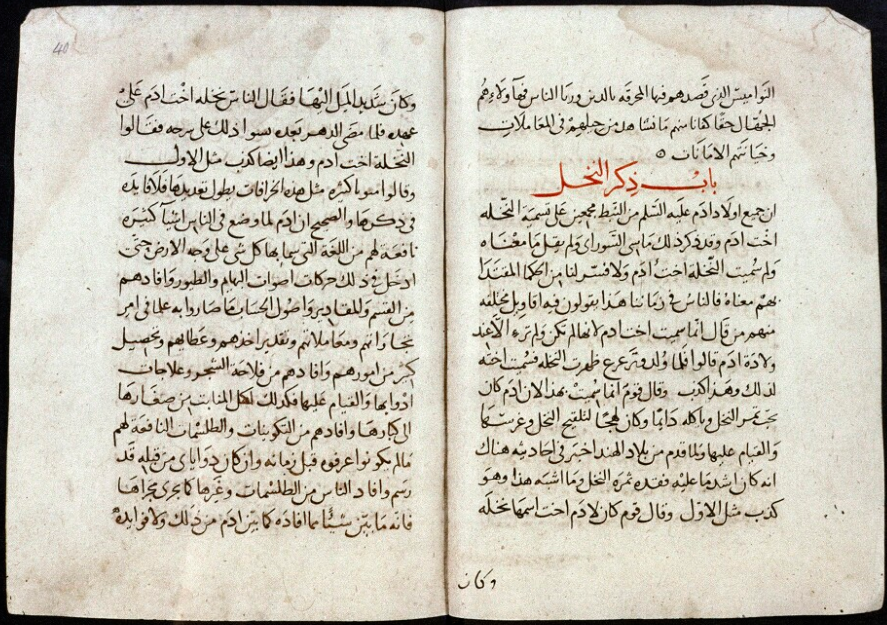 النواميس الذى قصدهم فيها المخرقه بالدين وربا الناس فيها ولاءهم
الجهال حقا كما نا سهم ما نسا هل من جهلهم فى المعاملات
وخيانتهم الامانات ه
باب ذكر النخل
ان جميع اولاد ادم عليه السلم من النبط مجمعين على تسمية النخله
اخت ادم وقد ذكر ذلك ماسى السورانى ولم يقل ما معناه
ولم سميت النخلة اخت ادم ولا فسر لنا من الحكما المقتدا
بهم معناه فالناس فى زماننا هذا يقولون فيه اقاويل مختلفه
منهم من قال انما سميت اخت ادم لانها لم تكن ولم تر الا عند
ولادة ادم قالوا فلما ولد وترعرع ظهرت النخله فسميت اخته
لذلك وهذا كذب وقال قوم انما سميت بهذا لان ادم كان
يحب ثمر النخل وياكله دايما وكان لهجا لتلقيح النخل وغرسها
والقيام عليها ولما قدم من بلاد الهند اخبر فى احاديثه هناك
انه كان اشد ما عليه فقده ثمرة النخل وما اشبه هذا وهو
كذب مثل الاول وقال قوم كان لادم اخت اسمها نخله
وكان
40
وكان شديد الميل اليها فقال الناس نخله اخت ادم على
عهده فلما مضى الدهر بعده نسوا ذلك على شرحه فقالوا
النخلة اخت ادم وهذا ايضا كذب مثل الاول
وقالوا امنوا كثيره مثل هذه الخرافات يطول تعديدها فلا فايده
فى ذكرها والصحيح ان ادم لما وضع فى الناس اشيآ كثيرة
نافعة لهم من اللغة التى سما بها كل شى على وجه الارض حتى
ادخل فى ذلك حركات اصوات البهايم والطيور وافادهم
من القسم والمقادير واصول الحساب ما صاروا به علما فى امر
تجاراتهم ومعاملاتهم وتقدير اخذهم وعطايهم وتحصيل
كثير من امورهم وافادهم من فلاحة الشجر وعلاجات
ادوايها والقيام عليها فكذلك لكل المنابت من صغارها
الى كبارها وافادهم من التكوينات والطلسمات النافعة لهم
مالم يكونوا عرفوه قبل زمانه وان كان دواناى من قبله قد
رسم وافاد الناس من الطلسمات وغيرها كما يجرى مجراها
فانه ما بين شيئا مما افاده كما بين ادم من ذلك ولا فوايده